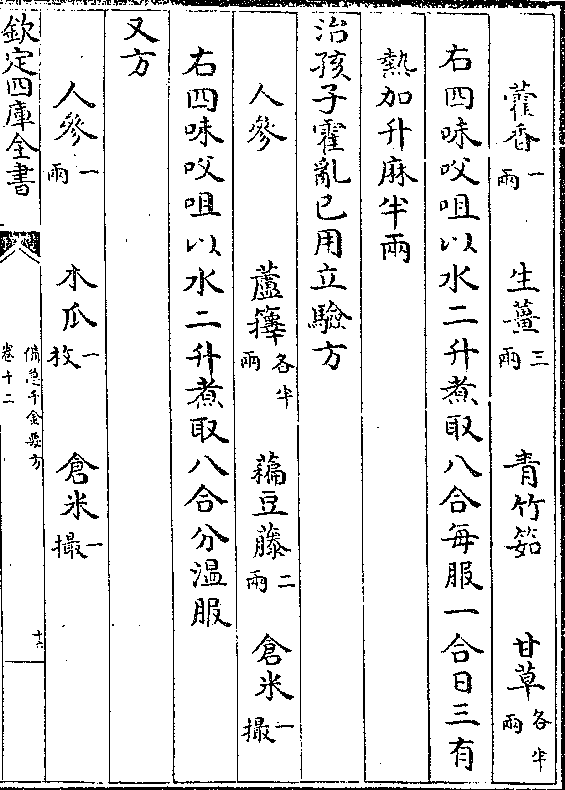 藿香一兩 生薑三兩 青竹筎 甘草各半兩
右四味㕮咀以水二升煮取八合每服一合日三有
熱加升麻半兩
治孩子霍亂已用立驗方
人參 蘆籜各半兩 藊豆藤二兩 倉米一撮
右四味㕮咀以水二升煮取八合分溫服
又方
人參一兩 木瓜一枚 倉米一撮
欽定四庫全書 備急千金要方 卷十二 十六